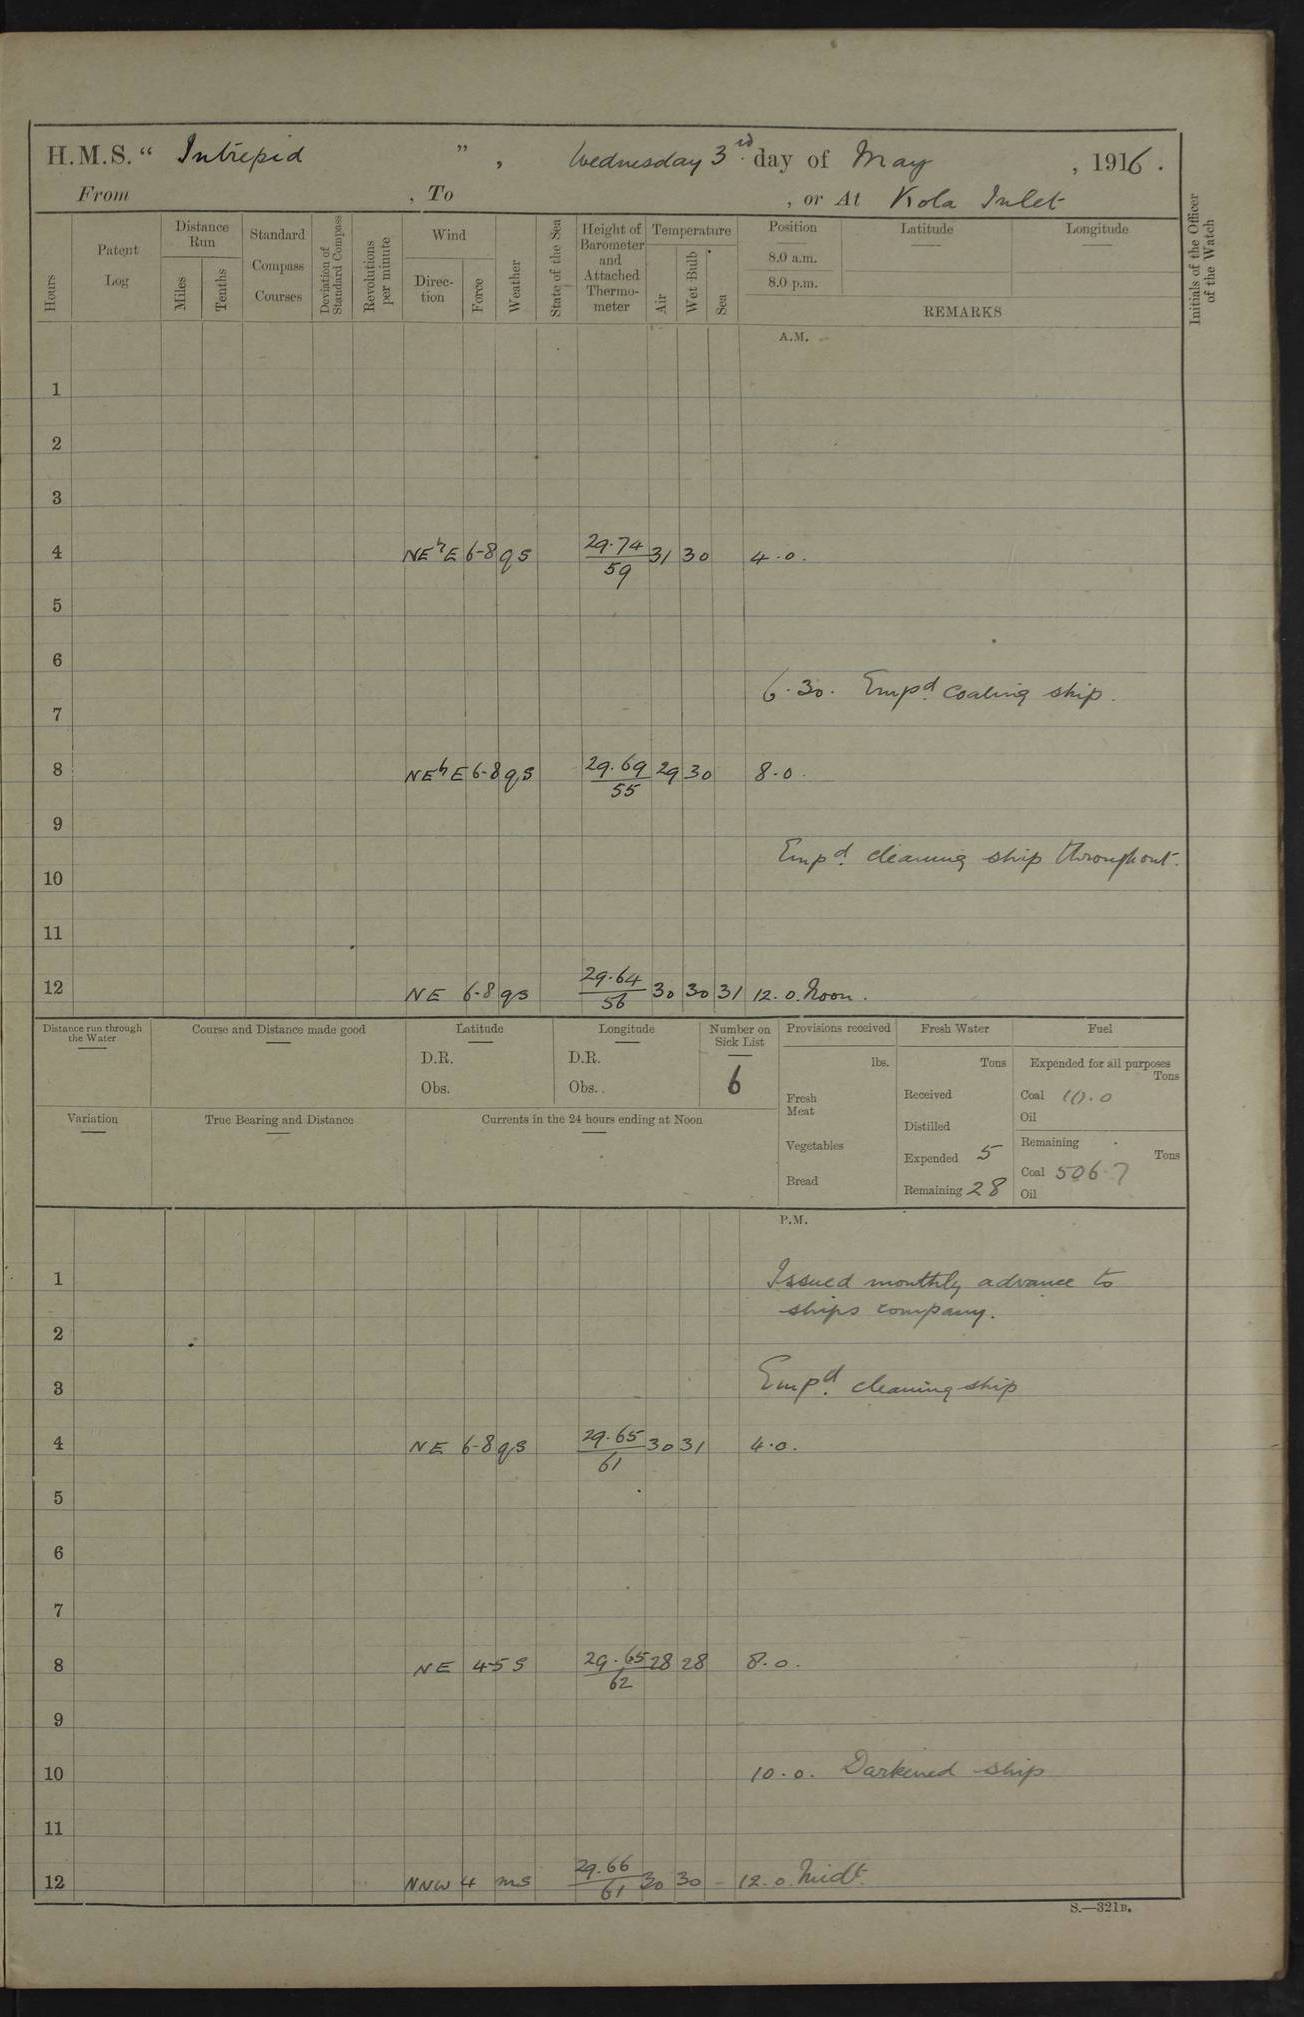 H.M.S. “ Intrepid ” , Wednesday 3rd. day of May , 1916 .
From , To , or At Kola Inlet
Hours
Patent Log
Distance Run
Miles
Tenths
Standard Compass Courses
Deviation of Standard Compass
Revolutions per minute
Wind
Direc-tion
Force
Weather
State of the Sea
Height of Barometer and Attached Thermo-meter
Temperature
Air
Wet Bulb
Sea
Position
8.0 a.m.
8.0 p.m.
Latitude
Longitude
REMARKS
Initials of the Officer of the Watch
A.M.
1
2
3
4 NEbE 6-8 qs 29.74/59 31 30 4.0.
5
6
6.30. Empd. coaling ship.
7
8 NEbE 6-8 qs 29.69/55 29 30 8.0.
9
Empd. cleaning ship throughout.
10
11
12 NE 6-8 qs 29.64/56 30 30 31 12.0. Noon.
Distance run through the Water
Course and Distance made good
Latitude
D.R.
Obs.
Longitude
D.R.
Obs.
Number on Sick List
6
Provisions received
lbs.
Fresh Meat
Vegetables
Bread
Fresh Water
Tons
Received
Distilled
Expended 5
Remaining 28
Fuel
Expended for all purposes
Tons
Coal 10.0
Oil
Remaining
Tons
Coal 506.7
Oil
Variation
True Bearing and Distance
Currents in the 24 hours ending at Noon
P.M.
1 Issued monthly advance to
ships company.
2
3 Empd. cleaning ship
4 NE 6-8 qs 29.65/61 30 31 4.0.
5
6
7
8 NE 4-5 s 29.65/62 28 28 8.0.
9
10 10.0. Darkened ship
11
12 NNW 4 ms 29.66/61 30 30 - 12.0. Midt.
S.—321B.